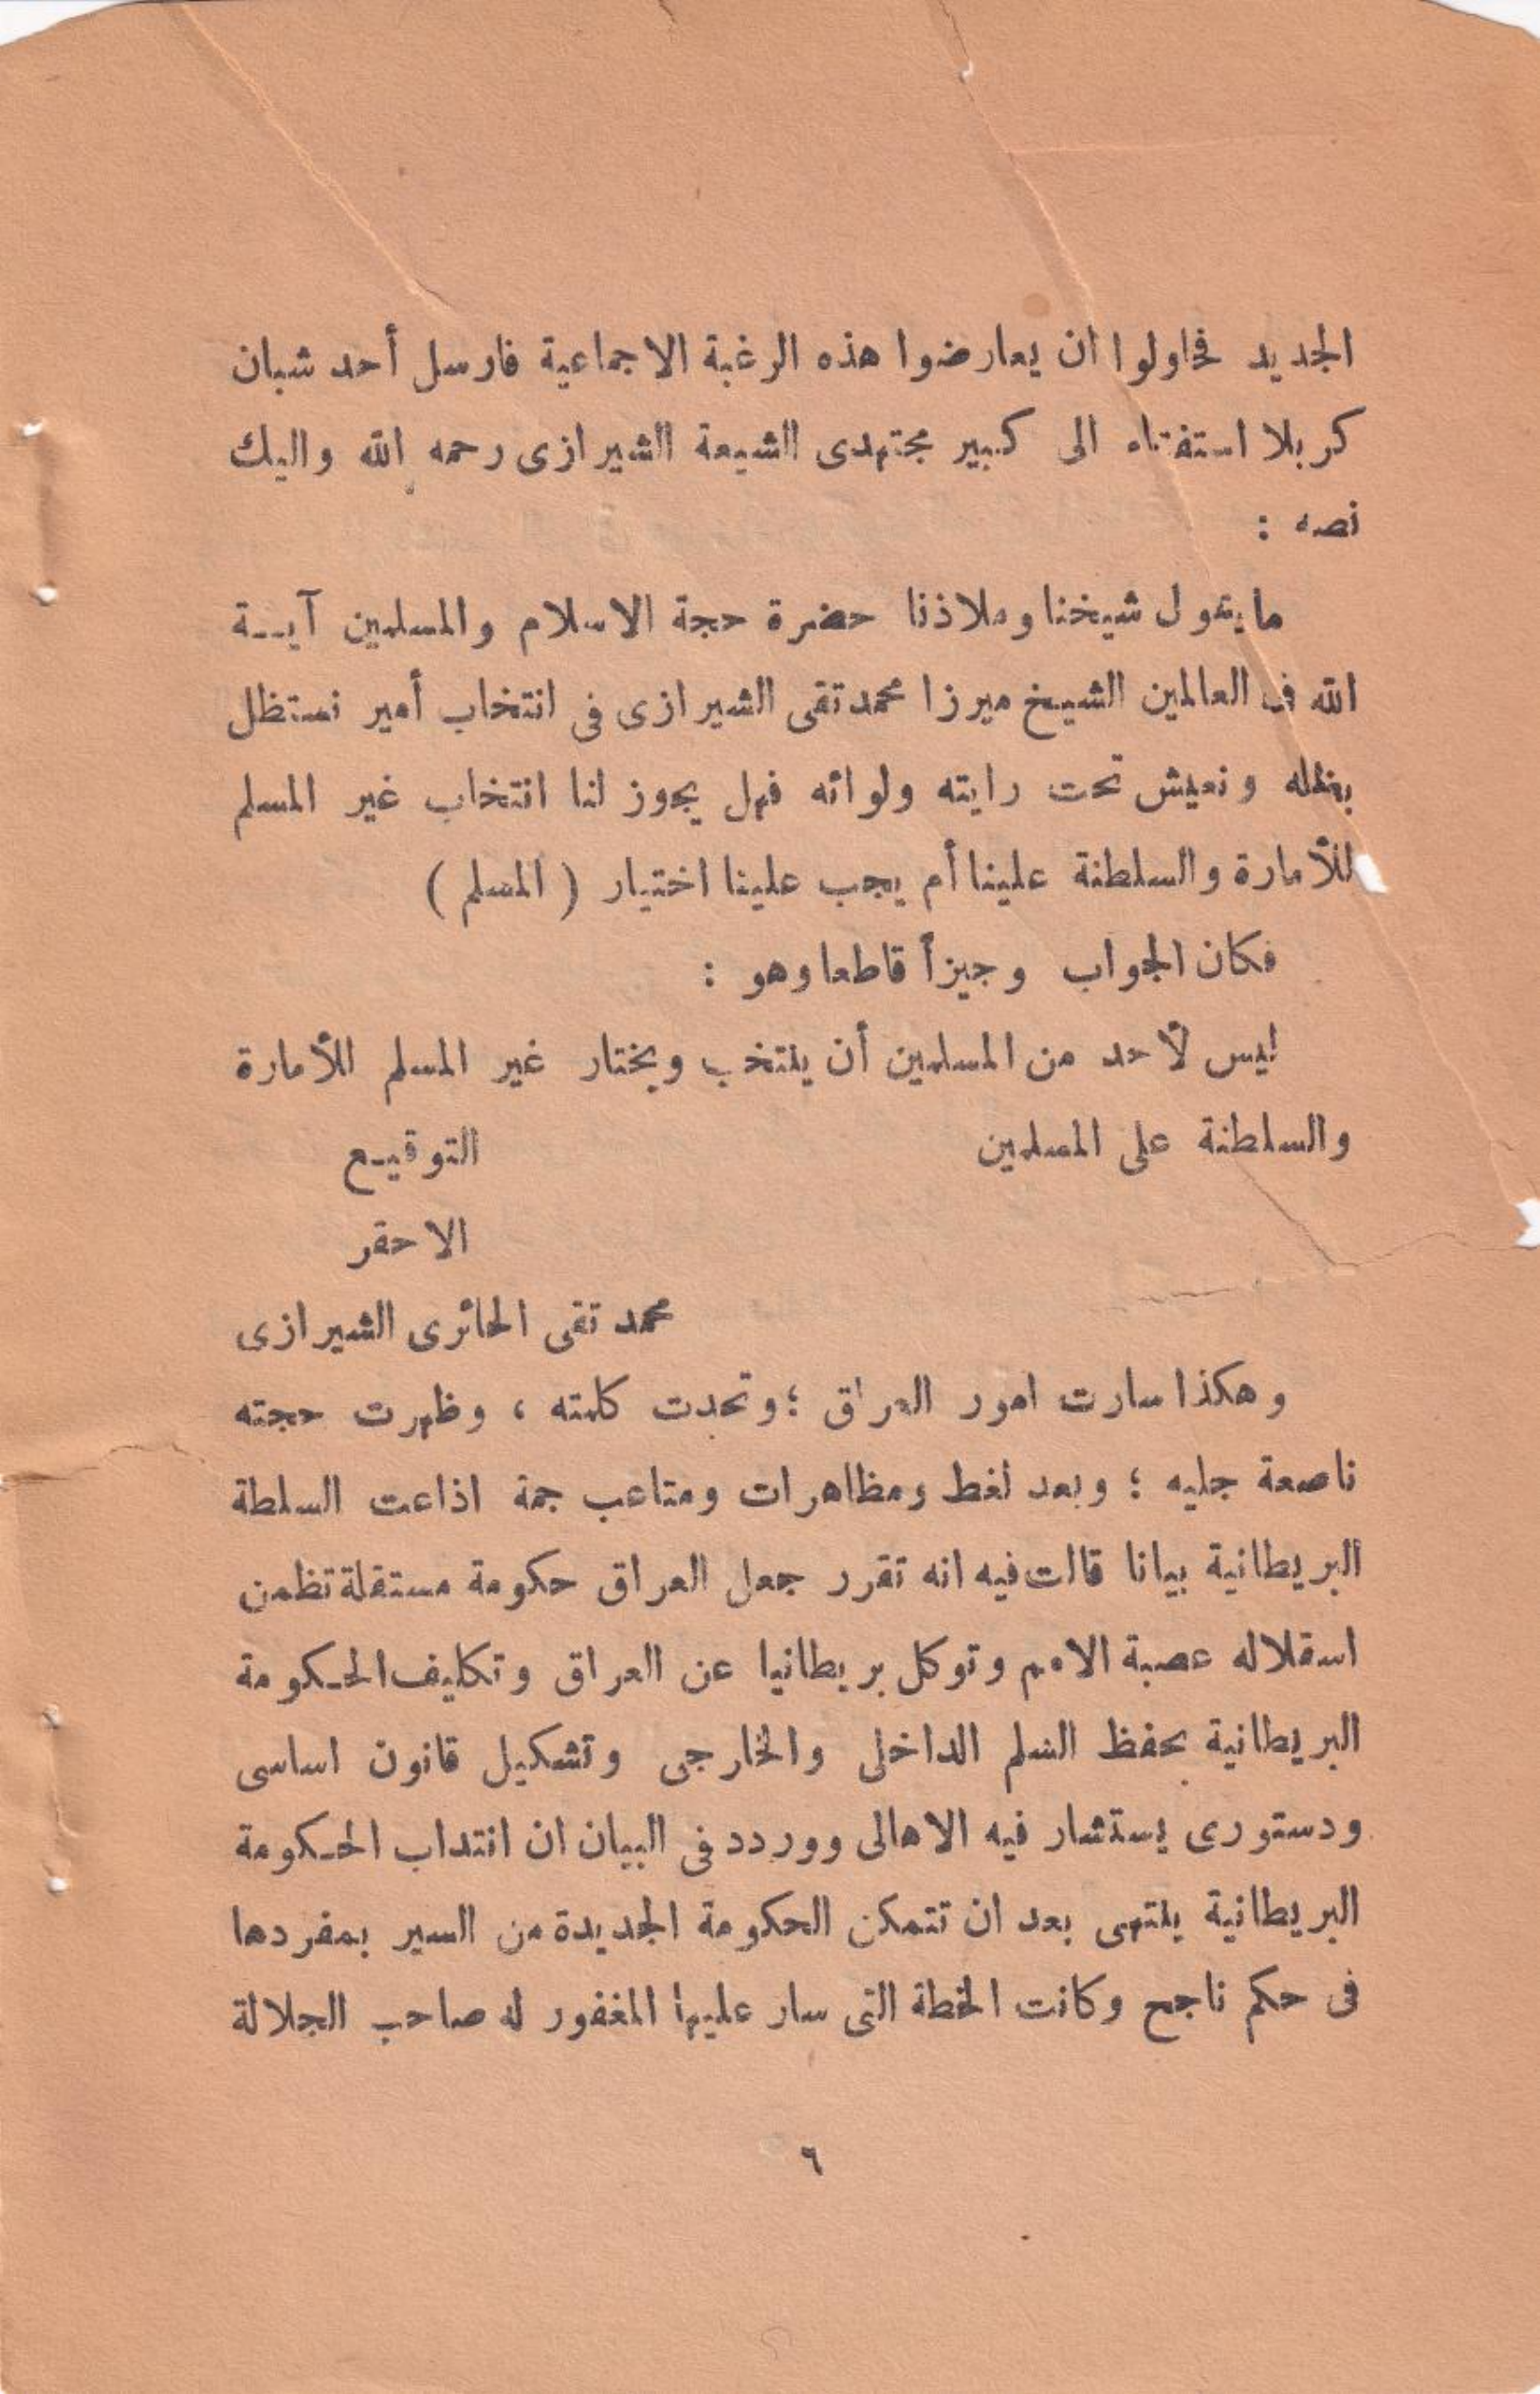 الجديد فحاولوا ان يعارضوا هذه الرغبة الاجماعية فارسل أحد شبان
كربلا استفتاه الى كبير مجتهدى الشيعة الشيرازى رحمه الله واليك
نصه :
مايقول شيخنا وملاذنا حضرة حجة الاسلام والمسلمين آيــة
الله فى العالمين الشيخ ميرزا محمد تقى الشيرازى فى انتخاب أمير نستظل
بظله ونعيش تحت رايته ولوائه فهل يجوز لنا انتخاب غير المسلم
للأمارة والسلطنة علينا أم يجب علينا اختيار ( المسلم )
فكان الجواب وجيزأ قاطعا وهو :
ليس لأحد من المسلمين أن ينتخب ويختار غير المسلم للأمارة
والسلطنة على المسلمين التوقيـع
الاحقر
محمد تقى الحائرى الشيرازى
وهكذا سارت امور العراق ؛ وتحدت كلمته ، وظهرت حجته
ناصعة جليه ؛ وبعد لغط ومظاهرات ومتاعب جمة اذاعت السلطة
البريطانية بيانا قالت فيه انه تقرر جعل العراق حكومة مستقلة تظمن
اسقلاله عصبة الامم وتوكل بريطانيا عن العراق وتكليف الحـكومة
البريطانية بحفظ السلم الداخلى والخارجى وتشكيل قانون اساسى
ودستورى يستشار فيه الاهالى ووردد فى البيان ان انتداب الحـكومة
البريطانية ينتهى بعد ان تتمكن الحكومة الجديدة من السير بمفردها
فى حكم ناجح وكانت الخطة التى سار عليها المغفور له صاحب الجلالة
٦